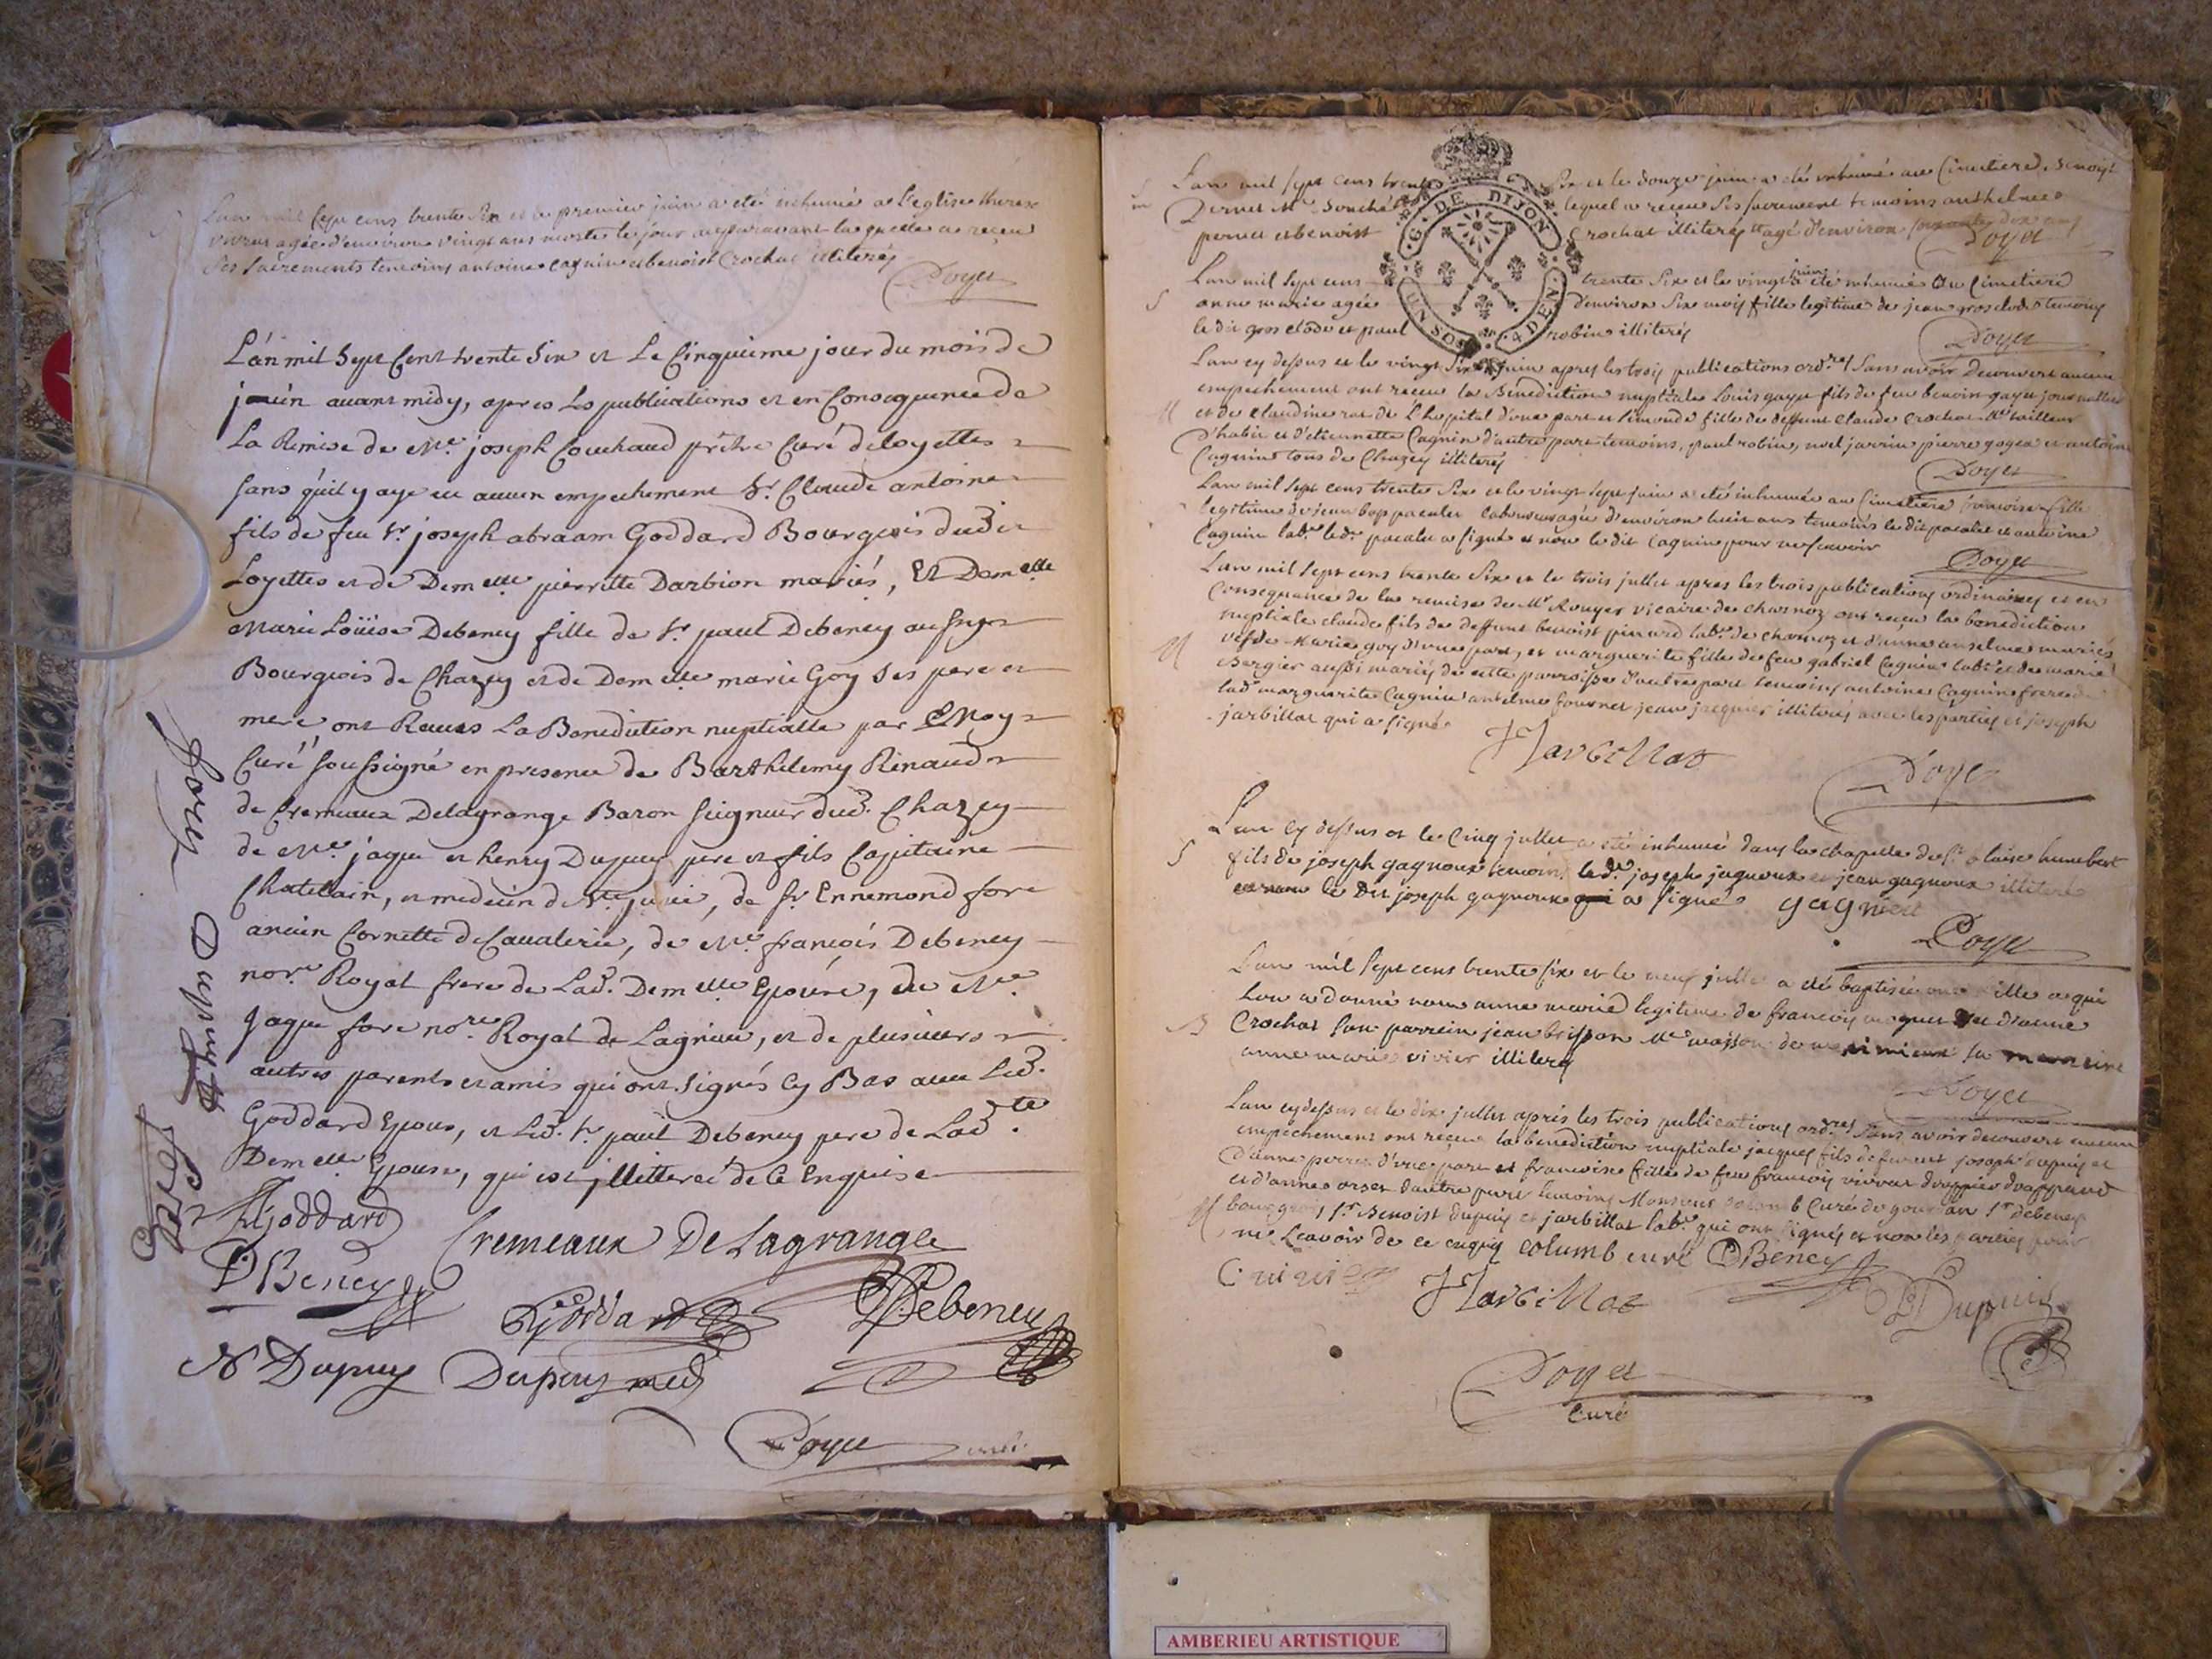 L'an mil sept cens trente six et le premier juin a eté inhumée a l'eglise therese
vivrat agée d'environ vingt ans morte le jour auparavant laquelle a reçeu
ses sacrements temoins antoine cagnin et benoist Crochat illiterés
Doyet
L'an mil sept Cent trente six et Le Cinquieme jour du mois de
juin avant midy, apres les publications et en Consequence de
La Remise de Me. joseph Couchaud prêtre Curé de loyettes
sans qu'il y aye eu aucun empechement Sr. Claude antoine
fils de feu Sr. joseph abraam Goddard Bourgeois dudit
Loyettes et de Demelle pierrette Darbion mariés, Et Demelle
Marie Loüise Debeney fille de Sr. paul Debeney aussy
Bourgeois de Chazey et de Demelle marie Goy ses pere et
mere, ont Reçus La Benediction nuptialle par Moy
Curé soussigné en presence de Barthelemy Renaud
de Cremeaux Delagrange Baron seigneur dud. Chazey
de Me. jaque et henry Dupuy pere et fils Capitaine
Chatelain, et medecin de Ste julie, de Sr Ennemond fore
ancien Cornette de Cavalerie, de Me. françois Debeney
nore. Royal frere de Lad. Demelle Epouse, de Me.
Jaque fore nore. Royal de Lagnieu, et de plusieurs
autres parents et amis qui ont signés cy Bas avec Led.
Goddard Epoux, et Led. Sr. paul Debeney pere de Ladte.
Demelle Epouse, qui est jllitteré de Ce Enquise
Goddard
Cremeaux De Lagrange
DBeney
Goddard
Debeney
N Dupuy
Dupuy med
Doyet curé
fore
Dupuy
G. DE DIJON
UN SOL 4 DEN
L'an mil sept cens trente six et le douze juin a eté inhumé au Cimetiere, benoist
pernet Me. bouché lequel a reçeu ses sacrement temoins anthelme
pernet et benoist Crochat illiterés agé d'environ soixante dix ans
Doyet
L'an mil sept cens trente six et le vingt juin a eté inhumée au Cimetiere
anne marie agée d'environ six mois fille legitime de jean gros clode temoins
le dit gros clode et paul robin illiterés
Doyet
L'an cy dessus et le vingt six juin apres les trois publications ordres sans avoir decouvert aucun
empechement ont receu la Benediction nuptiale Louis gayet fils de feu benoist gayet journallier
et de Claudine rat de L'hopital d'une part et simonde fille de deffunt claude Crochat Me tailleur
d'habit et d'etiennette Cagnin d'autre part temoins, paul robin, noel jarrin pierre gogea et antoine
Cagnin tous de Chazey illiterés
Doyet
L'an mil sept cens trente six et le vingt sept juin a eté inhumée au Cimetiere francoise fille
legitime de jean bap pacalet laboureur agée d'environ huit ans temoins le dit pacalet et antoine
Cagnin labr. ledt. pacalet a signé et non le dit Cagnin pour ne scavoir
Doyet
L'an mil sept cens trente six et le trois jullet apres les trois publications ordinaires et en
Consequance de la remise de Mr Rouyer vicaire de charnoz ont reçeu la benediction
nuptiale claude fils de deffunt benoist pinard labr. de charnoz et d'anne anselme mariés
vef de Marie goy d'une part, et marguerite fille de feu gabriel Cagnin labr. et de marie
Bergier aussi mariés de cette parroisse d'autre part temoins antoine Cagnin frere de
lad marguerite Cagnin anselme fournet jean jacquier illiterés avec les parties et joseph
jarbillat qui a signé
J Jarbillat
Doyet
L'an cy dessus et le Cinq jullet a eté inhumé dans la chapelle de St blaise humbert
fils de joseph gagnoux temoins ledt. joseph jagneux et jean gagneux illiteré
et non le dit joseph gagnoux qui a signé
gagneux
Doyet
L'an mil sept cens trente six et le neuf jullet a eté baptisée une fille a qui
l'on a donné nom anne marie legitime de francois et d'anne
Crochat son parrein jean brisson Me masson de meximieux sa marreine
anne marie vivier illiterés
Doyet
L'an cy dessus et le dix jullet aprés les trois publications ordres sans avoir decouvert aucun
empechement ont reçeu la benediction nuptiale jacques fils de deffunt joseph dupuis et
d'anne perret d'une part et francoise fille de feu francois vivrat drappier drappant
et d'anne orset d'autre part temoins Monsieur colomb Curé de gourdan Sr debeney
bourgeois, Sr. Benoist dupuis et jarbillat labr. qui ont signés et non les parties pour
ne scavoir de ce enquis
columb curé
DBeney
J Jarbillat
B Dupuis
Doyet
Curé
AMBERIEU ARTISTIQUE